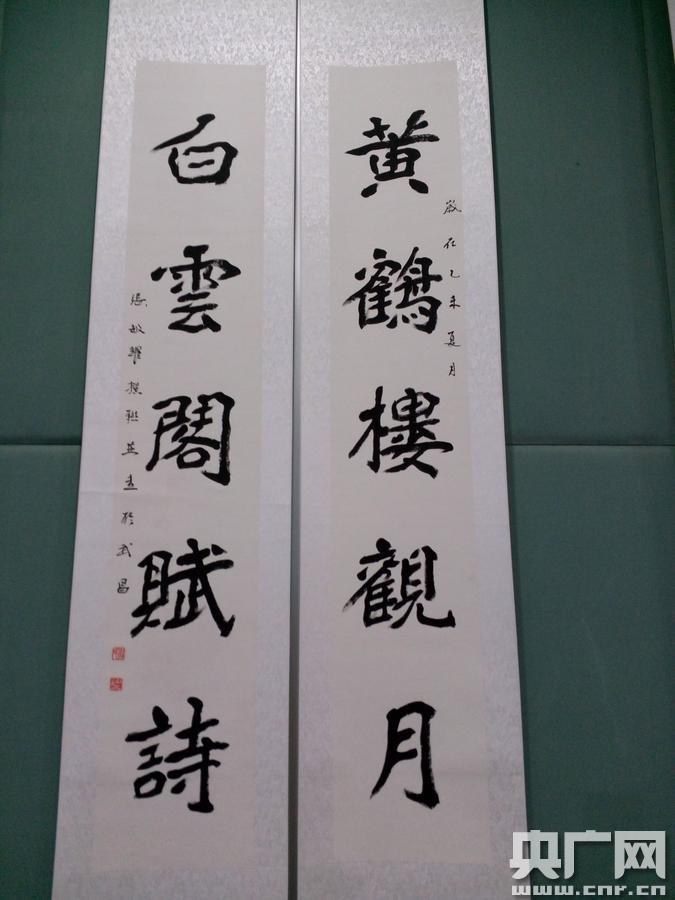 黄鶴樓觀月
歲在乙未夏月
白雲閣賦詩
張敏耀撰聯並書於武昌
央广网
www.cnr.cn